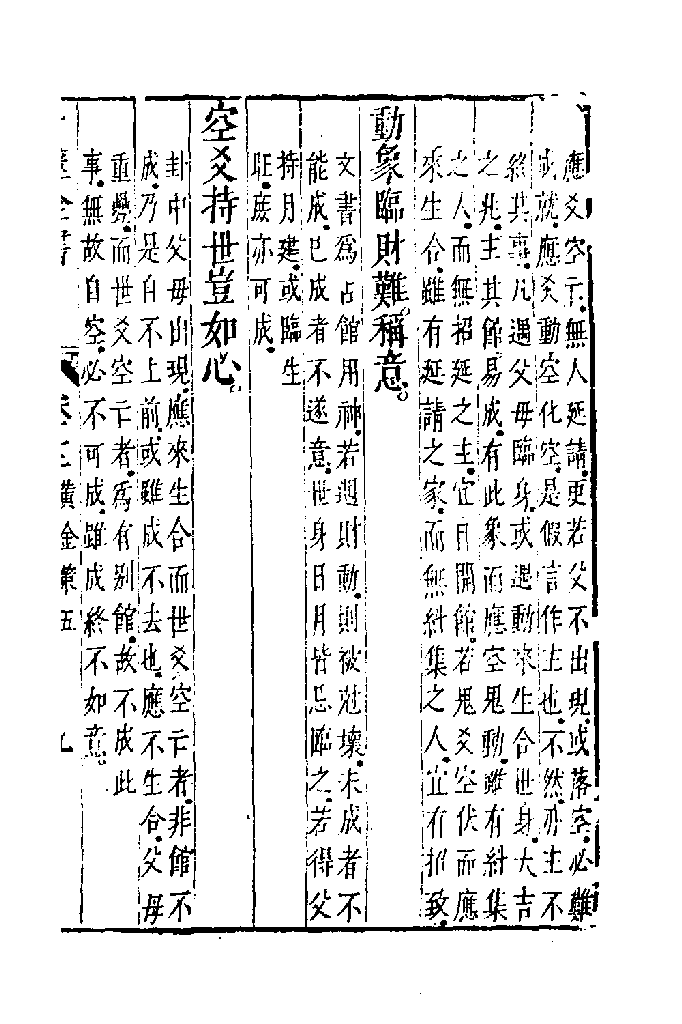 應爻空亡無人延請更若父不出現或落空必難
成就應爻動空化空是假言作主也不然亦主不
終其事凡遇父母臨身或遇動來生合世身大吉
之兆主其館易成有此象而應空鬼動雖有糾集
之人而無招延之主宜自開館若鬼爻空伏而應
來生合雖有延請之家而無糾集之人宜有招致
動象臨財難稱意
文書為占館用神若遇財動則被尅壞未成者不
能成已成者不遂意世身日月皆忌臨之若得父
持月建或臨生
旺庶亦可成
空爻持世豈如心
卦中父母出現應來生合而世爻空亡者非館不
成乃是自不上前或雖成不去也應不生合父母
重疊而世爻空亡者為有別館故不成此
事無故自空必不可成雖成終不如意
全書 卷 黃金策五 九